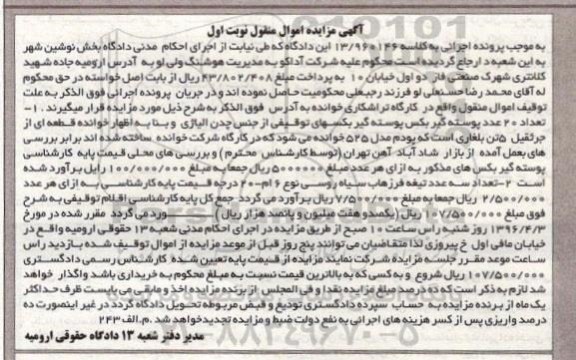 آگهی مزایده اموال منقول نوبت اول
به موجب پرونده اجرائی به کلاسه ۱۳/۹۶۰۱۴۶ این دادگاه که طی نیابت از اجرای احکام مدنی دادگاه بخش نوشین شهر
به این شعبه در ارجاع گردیده است محکوم علیه شرکت آداکو به مدیریت هوشنگ ولی لو به آدرس ارومیه جاده شهید
کلانتری شهرک صنعتی فاز دو اول خیابان ۱۰ به پرداخت مبلغ ۴۳/۸۰۲/۴۰۸ ریال از بابت اصل خواسته در حق محکوم
له آقای محمد رضا حسنعلی لو فرزند رجبعلی محکومیت حاصل نموده اند و در جریان پرونده اجرائی فوق الذکر به علت
توقیف اموال منقول واقع در کارگاه تراشکاری خوانده به آدرس فوق الذکر به شرح ذیل مورد مزایده قرار میگیرند . ۱-
تعداد ۲۰ عدد پوسته گیر بکس پوسته گیر بکسهای توقیفی از جنس چدن آلیاژی و بنا به اظهار خوانده قطعه ای از
جرثقیل ۵تن بلغاری است که پودم مدل ۵۲۵ خوانده می شود که در کارگاه شرکت خوانده ساخته شده اند برابر بررسی
های بعمل آمده از بازار شاد آباد آهن تهران (توسط کارشناس محترم) و بررسی های محلی قیمت پایه کارشناسی
پوسته گیر بکس های مذکور به ازای هر عدد مبلغ ۵۰۰۰۰۰۰ ریال جمعا به مبلغ ۱۰۰/۰۰۰/۰۰۰ رایل برآورد شده
است ۲-تعداد سه عدد تیغه فرز هاب سیاه روسی نوع ۶ ام-۲۰ درجه قیمت پایه کارشناسی به ازای هر عدد
۲/۵۰۰/۰۰۰ ریال جمعا به مبلغ ۷/۵۰۰/۰۰۰ ریال برآورد می گردد جمع کل پایه کارشناسی اقلام توقیفی به شرح
فوق مبلغ ۱۰۷/۵۰۰/۰۰۰ ریال (یکصد و هفت میلیون و پانصد هزار ریال) ورد می گردد مقرر شده در مورخ
۱۳۹۶/۴/۳ روز شنبه راس ساعت ۱۰ صبح از طریق مزایده در اجرای احکام مدنی شعبه ۱۳ حقوقی ارومیه واقع در
خیابان مافی اول خ پیروزی لذا متقاضیان می توانند پنج روز قبل از موعد مزایده از اموال توقیف شده بازدید راس
ساعت موعد مقرر جلسه مزایده شرکت نمایند مزایده از قیمت پایه تعیین شده کارشناس رسمی دادگستری
۱۰۷/۵۰۰/۰۰۰ ریال شروع و به کسی که به بالاترین قیمت نسبت به مبلغ محکوم به خریداری باشد واگذار خواهد
شد لازم به ذکر است که ده درصد مبلغ مزایده نقدا و فی المجلس از برنده مزایده اخذ و مابقی می بایست ظرف حداکثر
یک ماه از برنده مزایده به حساب سپرده دادگستری تودیع و قبض مربوطه تحویل دادگاه گردد در غیر اینصورت ده
درصد واریزی پس از کسر هزینه های اجرائی به نفع دولت ضبط و مزایده تجدید خواهد شد .م.الف ۲۴۳
مدیر دفتر شعبه ۱۳ دادگاه حقوقی ارومیه